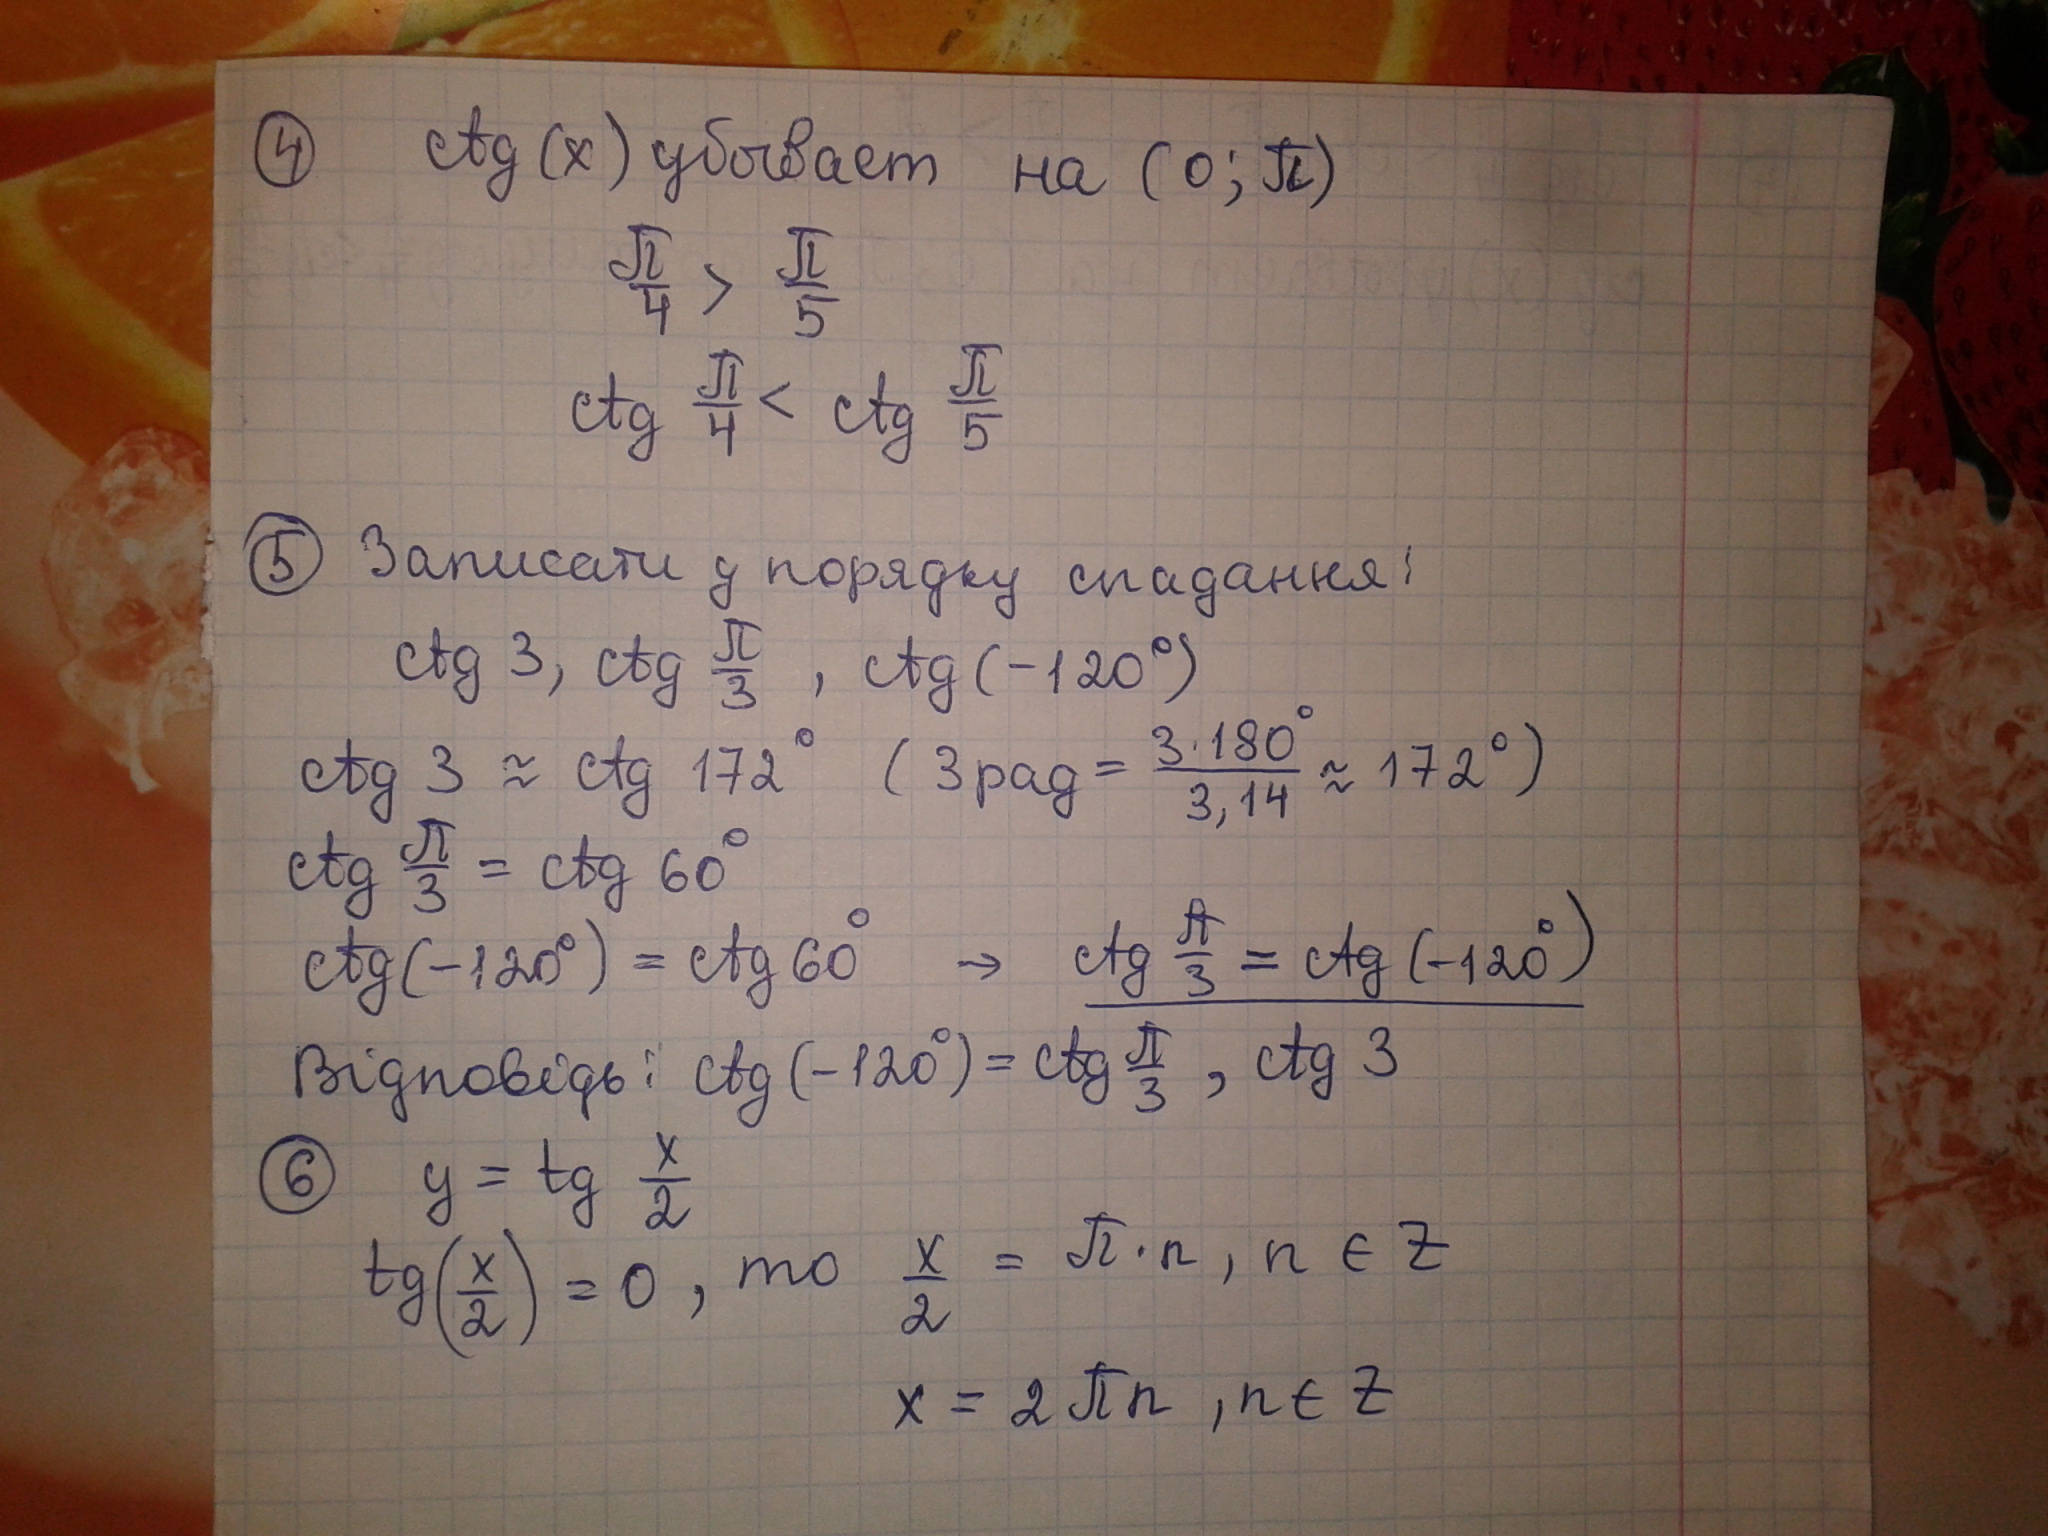 ④ ctg(x) убывает на (0; π)
π/4 > π/5
ctg π/4 < ctg π/5
⑤ Записати у порядку спадання:
ctg 3, ctg π/3, ctg(-120°)
ctg 3 ≈ ctg 172° (3 рад = 3·180°/3,14 ≈ 172°)
ctg π/3 = ctg 60°
ctg(-120°) = ctg 60° → ctg π/3 = ctg(-120°)
Відповідь: ctg(-120°) = ctg π/3, ctg 3
⑥ y = tg x/2
tg(x/2) = 0, то x/2 = π·n, n ∈ Z
x = 2πn, n ∈ Z